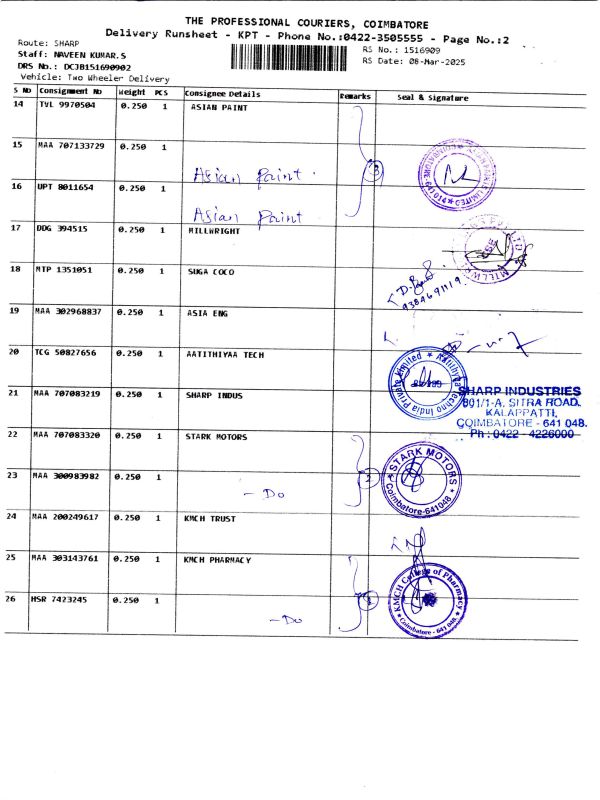 THE PROFESSIONAL COURIERS, COIMBATORE
Delivery Runsheet - KPT - Phone No.:0422-3505555 - Page No.:2
Route: SHARP
RS No.: 1516909
Staff: NAVEEN KUMAR.S
RS Date: 08-Mar-2025
DRS No.: DCJB151690902
Vehicle: Two Wheeler Delivery
S No Consignment No Weight PCS Consignee Details Remarks Seal & Signature
14 TVL 9970504 0.250 1 ASIAN PAINT
15 MAA 707133729 0.250 1
Asian Paint
3
16 UPT 8011654 0.250 1
Asian Paint
17 DDG 394515 0.250 1 MILLWRIGHT
18 MTP 1351051 0.250 1 SUGA COCO
9384691119
19 MAA 302968837 0.250 1 ASIA ENG
20 TCG 50827656 0.250 1 AATITHIYAA TECH
Techno India Private Limited
21 MAA 707083219 0.250 1 SHARP INDUS
SHARP INDUSTRIES
891/1-A, SITRA ROAD,
KALAPPATTI,
COIMBATORE - 641 048.
Ph : 0422 - 4226000
22 MAA 707083320 0.250 1 STARK MOTORS
STARK MOTORS
Coimbatore-641048
2
23 MAA 300983982 0.250 1
- Do
24 MAA 200249617 0.250 1 KMCH TRUST
25 MAA 303143761 0.250 1 KMCH PHARMACY
KMCH College of Pharmacy
Coimbatore - 641 048.
26 HSR 7423245 0.250 1
- Do